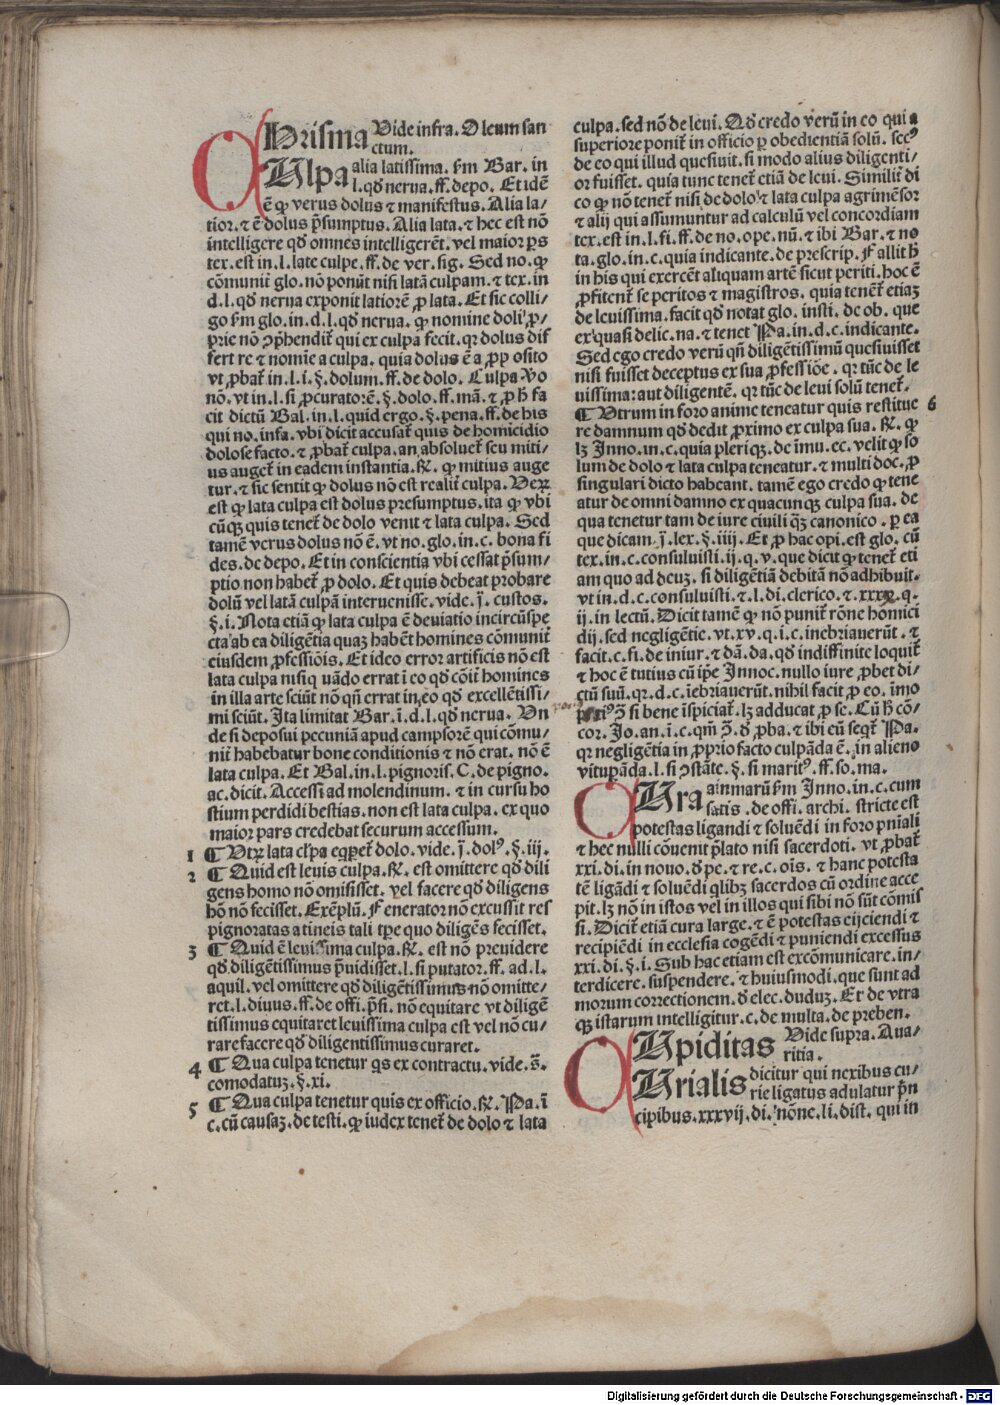 CHrisma Vide infra. Oleum san
ctum.
CUlpa alia latissima. ẜm Bar. in
l. qđ nerua. ff. depo. Et idē
ē ꝙ verus dolus ⁊ manifestus. Alia la/
tior. ⁊ ē dolus p̄sumptus. Alia lata. ⁊ hec est nō
intelligere qđ omnes intelligerēt. vel maior ꝑs
tex. est in. l. late culpe. ff. de ver. sig. Sed no. ꝙ
cōmunit̄ glo. nō ponūt nisi latā culpam. ⁊ tex. in
d. l. qđ nerua exponit latiorē ꝓ lata. Et sic colli/
go ẜm glo. in. d. l. qđ nerua. ꝙ nomine doli ꝓ/
prie nō ꝯp̄hendit̄ qui ex culpa fecit. qꝛ dolus dif
fert re ⁊ nomīe a culpa. quia dolus ē a ꝓposito
vt ꝓbat̄ in. l. i. §. dolum. ff. de dolo. Culpa ṽo
nō. vt in. l. si ꝓcuratorē. §. dolo. ff. mā. ⁊ ꝓ ħ fa
cit dictū Bal. in. l. quid ergo. §. pena. ff. de his
qui no. infa. vbi dicit accusat̄ quis de homicidio
dolose facto. ⁊ ꝓbat̄ culpa. an absoluet̄ seu miti/
us auget̄ in eadem instantia. R̄. ꝙ mitius auge
tur. ⁊ sic sentit ꝙ dolus nō est realit̄ culpa. Veꝝ
est ꝙ lata culpa est dolus presumptus. ita ꝙ vbi
cūqꝫ quis tenet̄ de dolo venit ⁊ lata culpa. Sed
tamē verus dolus nō ē. vt no. glo. in. c. bona fi
des. de depo. Et in conscientia vbi cessat p̄sum/
ptio non habet̄ ꝓ dolo. Et quis debeat probare
dolū vel latā culpā interuenisse. vide. j. custos.
§. i. Nota etiā ꝙ lata culpa ē deuiatio incircūspe
cta ab ea diligētia quaꝫ habēt homines cōmunit̄
eiusdem ꝓfessiōis. Et ideo error artificis nō est
lata culpa nisi qn̄ vādo errat i eo qđ cōit̄ homines
in illa arte sciūt nō qn̄ errat in eo qđ excellētissi/
mi sciūt. Ita limitat Bar. ī. d. l. qđ nerua. Vn
de si deposui pecuniā apud campsorē qui cōmu/
nit̄ habebatur bone conditionis ⁊ nō erat. nō ē
lata culpa. Et Bal. in. l. pignoris. C. de pigno.
ac. dicit. Accessi ad molendinum. ⁊ in cursu ho
stium perdidi bestias. non est lata culpa. ex quo
maior pars credebat securum accessum.
1 ¶ Vtꝝ lata culpa eqꝑet̄ dolo. vide. j. dolꝰ. §. iij.
2 ¶ Quid est leuis culpa. R̄. est omittere qđ dili
gens homo nō omisisset. vel facere qđ diligens
hō nō fecisset. Exēplū. Fenerator nō excussit res
pignoratas a tineis tali tꝑe quo diligēs fecisset.
3 ¶ Quid ē leuissima culpa. R̄. est nō preuidere
qđ diligētissimus p̄uidisset. l. si putator. ff. ad. l.
aquil. vel omittere qđ diligētissimus nō omitte/
ret. l. diuus. ff. de offi. p̄si. nō equitare vt diligē
tissimus equitaret leuissima culpa est vel nō cu/
rare facere qđ diligentissimus curaret.
4 ¶ Qua culpa tenetur qs ex contractu. vide. s̄.
comodatuꝫ. §. xi.
5 ¶ Qua culpa tenetur quis ex officio. R̄. Pa. ī
c. cū causaꝫ. de testi. ꝙ iudex tenet̄ de dolo ⁊ lata
culpa. sed nō de leui. Qđ credo verū in eo qui a
superiore ponit̄ in officio ꝑ obedientiā solū. secꝰ
de eo qui illud quesiuit. si modo alius diligenti/
or fuisset. quia tunc tenet̄ etiā de leui. Similit̄ di
co ꝙ nō tenet̄ nisi de dolo ⁊ lata culpa agrimēsor
⁊ alij qui assumuntur ad calculū vel concordiam
tex. est in. l. fi. ff. de no. ope. nū. ⁊ ibi Bar. ⁊ no
ta. glo. in. c. quia indicante. de prescrip. Fallit ħ
in his qui exercēt aliquam artē sicut periti. hoc ē
ꝓfitent̄ se peritos ⁊ magistros. quia tenēt̄ etiaꝫ
de leuissima. facit qđ notat glo. insti. de ob. que
ex quasi delic. na. ⁊ tenet Pa. in. d. c. indicante.
Sed ego credo verū qn̄ diligētissimū quesiuisset
nisi fuisset deceptus ex sua ꝓfessiōe. qꝛ tūc de le
uissima: aut diligentē. qꝛ tūc de leui solū tenet̄.
¶ Vtrum in foro anime teneatur quis restitue 6
re damnum qđ dedit ꝓximo ex culpa sua. R̄. ꝙ
lꝫ Inno. in. c. quia pleriqꝫ. de īmu. ec. velit ꝙ so
lum de dolo ⁊ lata culpa teneatur. ⁊ multi doc. ꝓ
singulari dicto habeant. tamē ego credo ꝙ tene
atur de omni damno ex quacunqꝫ culpa sua. de
qua tenetur tam de iure ciuili q̄ꝫ canonico. ꝑ ea
que dicam. j. lex. §. iiij. Et ꝓ hac opi. est glo. cū
tex. in. c. consuluisti. ij. q. v. que dicit ꝙ tenet̄ eti
am quo ad deuꝫ. si diligētiā debitā nō adhibuit.
vt in. d. c. consuluisti. ⁊. l. di. clerico. ⁊. xxxv. q.
ij. in lectū. Dicit tamē ꝙ nō punit̄ rōne homici
dij. sed negligētie. vt. xv. q. i. c. inebriauerūt. ⁊
facit. c. fi. de iniur. ⁊ dā. da. qđ indiffinite loquit̄
⁊ hoc ē tutius cū ip̄e Innoc. nullo iure ꝓbet di/
ctū suū. qꝛ. d. c. īebriauerūt. nihil facit ꝓ eo. īmo
si bene īspiciat̄. lꝫ adducat ꝓ se. Cū ħ cō/
cor. Jo. an. ī. c. qm̄ ꝯ. đ ꝓba. ⁊ ibi eū seqt̄ Pa.
qꝛ negligētia in ꝓprio facto culpāda ē. in alieno
vitupāda. l. si ꝯstāte. §. si maritꝰ. ff. so. ma.
CUra aīmarū ẜm Inno. in. c. cum
satis. de offi. archi. stricte est
potestas ligandi ⁊ soluēdi in foro pn̄iali
⁊ hec nulli cōuenit p̄lato nisi sacerdoti. vt ꝓbat̄
xxi. di. in nouo. đ pe. ⁊ re. c. oīs. ⁊ hanc potesta
tē ligādi ⁊ soluēdi qlibꝫ sacerdos cū ordine acce
pit. lꝫ nō in istos vel in illos qui sibi nō sūt cōmis
si. Dicit̄ etiā cura large. ⁊ ē potestas eijciendi ⁊
recipiēdi in ecclesia cogēdi ⁊ puniendi excessus
xxi. di. §. i. Sub hac etiam est excōmunicare. in/
terdicere. suspendere. ⁊ huiusmodi. que sunt ad
morum correctionem. đ elec. duduꝫ. Et de vtra
qꝫ istarum intelligitur. c. de multa. de preben.
CUpiditas Vide supra. Aua/
ritia.
CUrialis dicitur qui nexibus cu/
rie ligatus adulatur p̄n
cipibus. xxxvij. di. nōne. li. dist. qui in
Digitalisierung gefördert durch die Deutsche Forschungsgemeinschaft - DFG